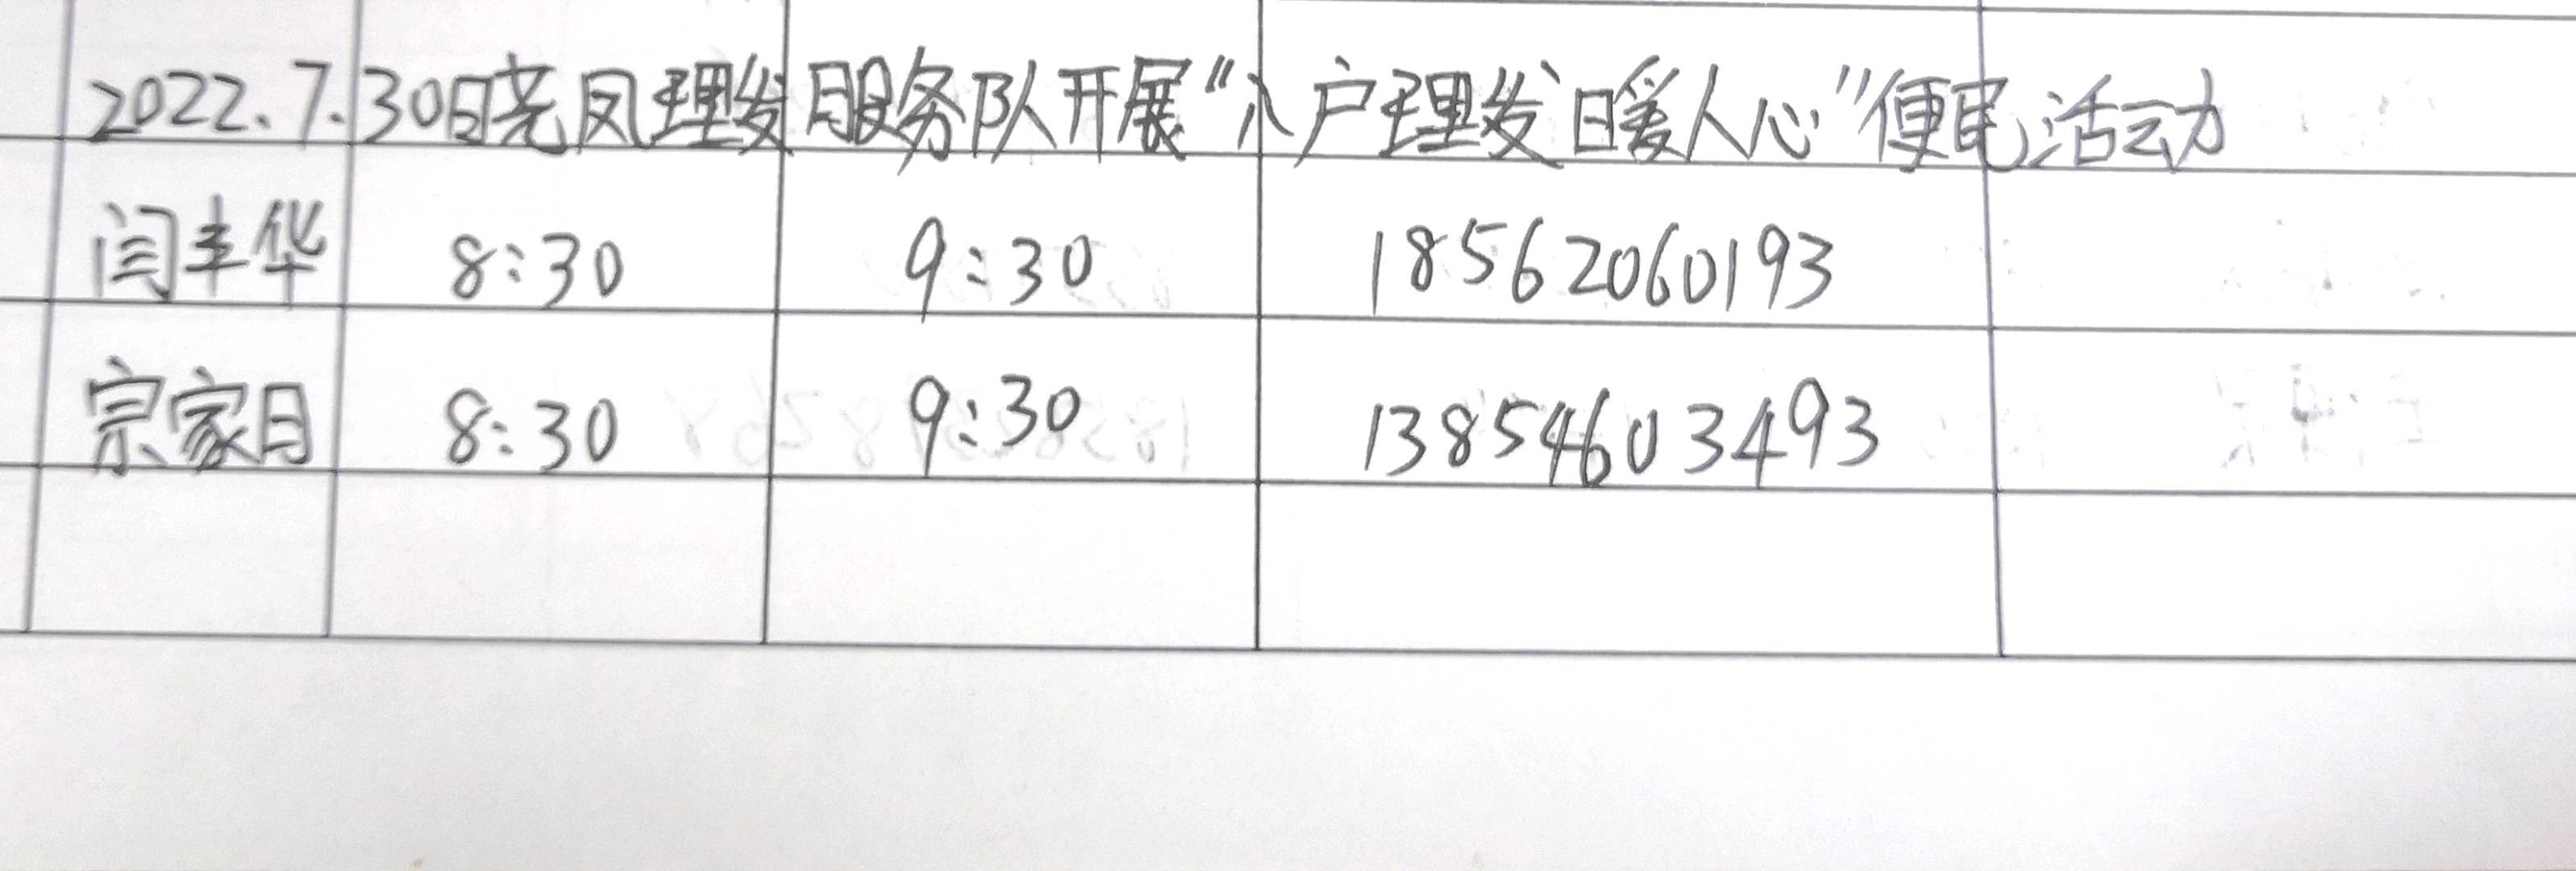 2022.7.30日晓凤理发服务队开展“入户理发暖人心”便民活动
闫丰华 8:30 9:30 18562060193
宗家月 8:30 9:30 13854603493